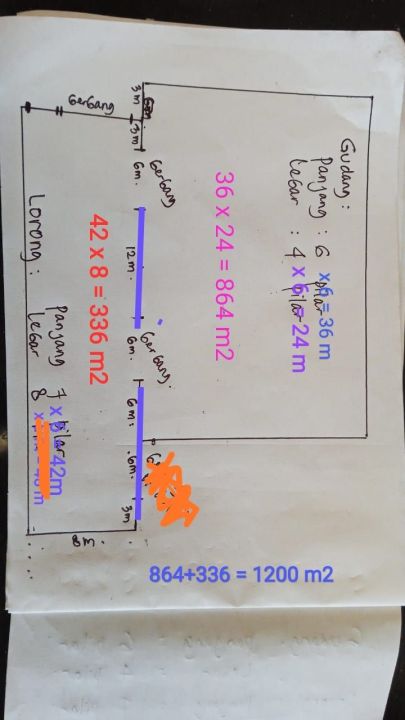 Gudang :
Panjang : 6 x 6 = 36 m
Lebar : 4 x 6 = 24 m
36 x 24 = 864 m2
Gerbang
3m
3m
6m.
Gerbang
12m.
6m.
Gerbang.
6m.
6m.
3m
42 x 8 = 336 m2
Lorong :
Panjang 7 x 42m
Lebar 8
8m.
864+336 = 1200 m2